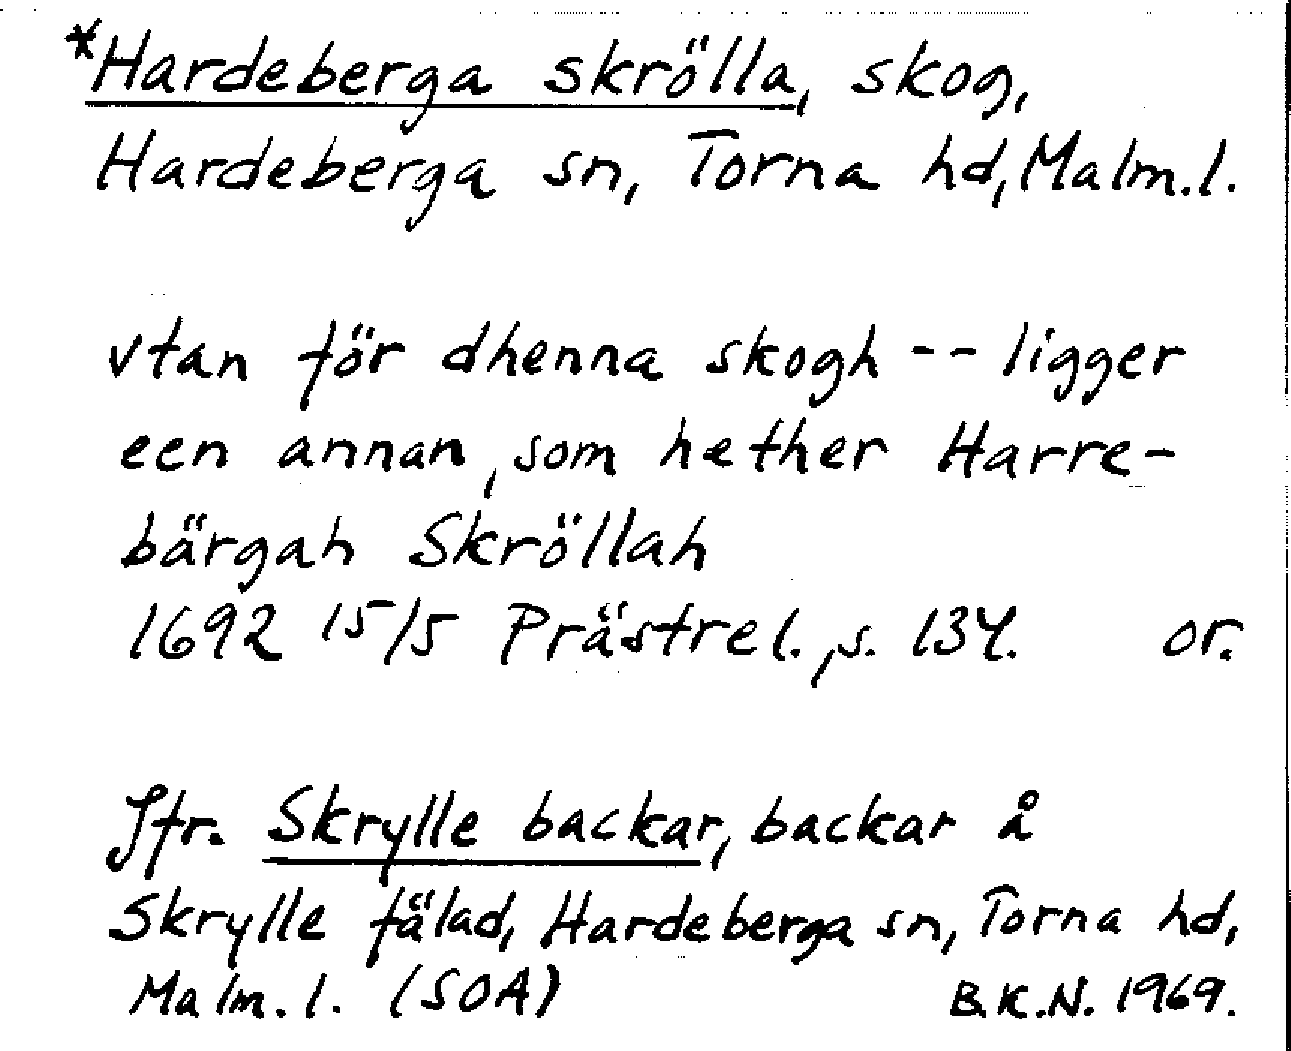 *Hardeberga skrölla, skog,
Hardeberga sn, Torna hd, Malm.l.
vtan för dhenna skogh -- ligger
een annan, som hether Harre-
bärgah Skröllah
1692 15/5 Prästrel., s. 134. or.
Jfr. Skrylle backar, backar å
Skrylle fälad, Hardeberga sn, Torna hd,
Malm.l. (SOA) B.K.N. 1969.